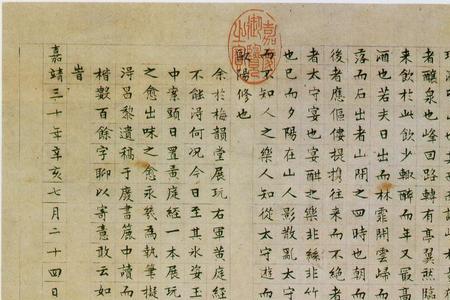 者釀泉也峰回路轉有亭翼然臨
來飲於此飲少輒醉而年又最高
酒也若夫日出而林霏開雲歸而
落而石出者山間之四時也朝而
後者應傴僂提攜往來而不絕者
者太守宴也宴酣之樂非絲非竹
也已而夕陽在山人影散亂太守
而不知人之樂人知從太守遊而
歐陽修也
余於梅韻堂展玩右軍黃庭經
不能淂何况今日至其氷姿玉
中案頭日置黃庭經一本展玩
之愈出味之愈永為執筆擬
淂昌黎遺稿于廢書簏中讀而
楷數百餘字聊以寄意敢云如
旹
嘉靖三十年辛亥七月二十四日